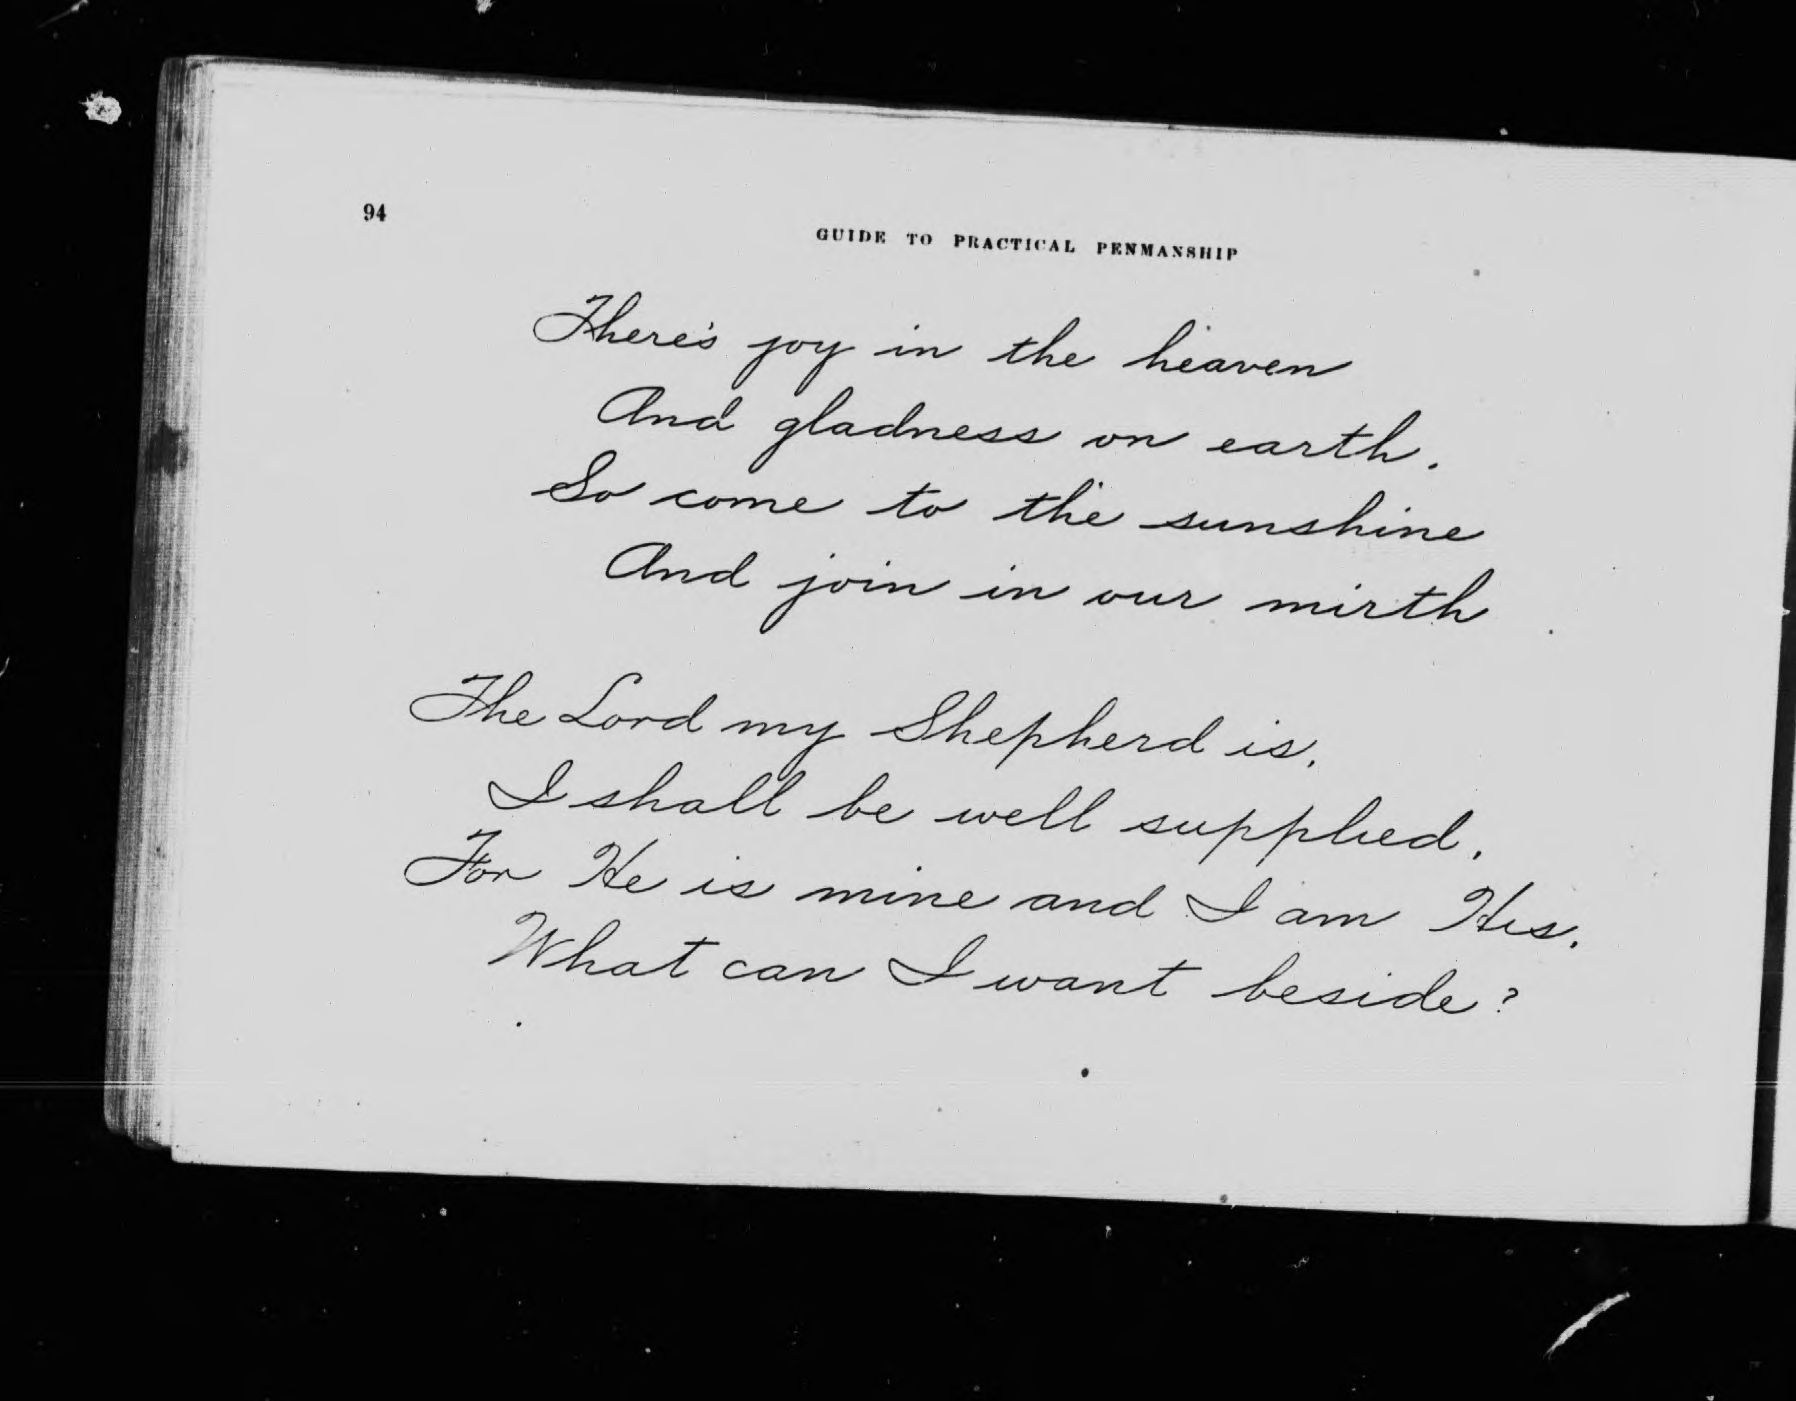 94
GUIDE TO PRACTICAL PENMANSHIP
There's joy in the heaven
And gladness on earth.
So come to the sunshine
And join in our mirth
The Lord my Shepherd is.
I shall be well supplied.
For He is mine and I am His.
What can I want beside?